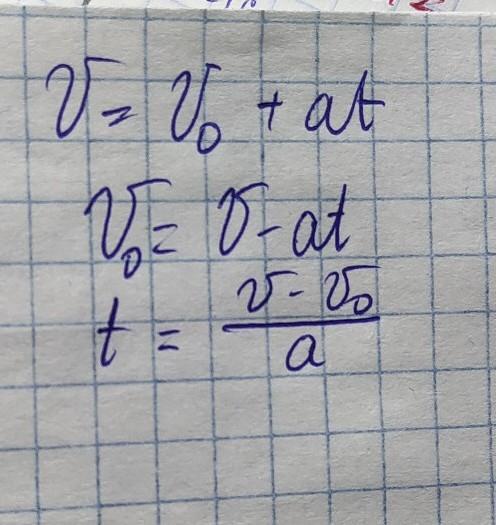 v = v₀ + at
v₀ = v - at
t = (v - v₀) / a